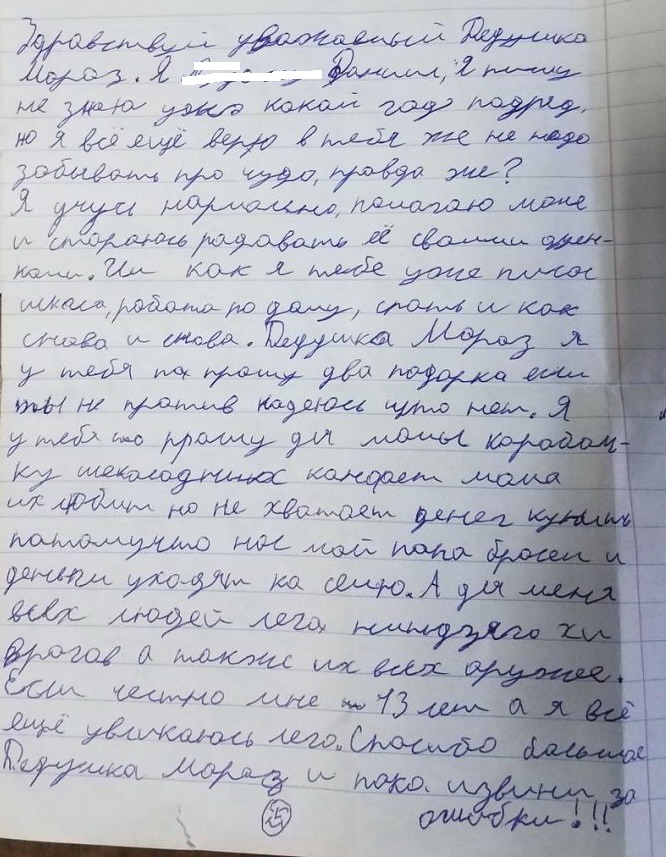 Здравствуй уважаемый Дедушка
Мороз. Я Даниил, я пишу
не знаю уже какой год подряд,
но я всё ещё верю в тебя же не надо
забывать про чудо, правда же?
Я учусь нармально, помагаю маме
и стараюсь радавать её своими оцен-
ками. Ну как я тебе уже писал
школа, работа по дому, спать и как
снова и снова. Дедушка Мороз я
у тебя па прашу два подарка если
ты не против надеюсь што нет. Я
у тебя по прашу для мамы каробам-
ку шекаладных канфет мама
их любит но не хватает денег купить
патамушто нас мой папа бросил и
деньги уходят на семю. А для меня
всех людей лего ниндзяго хи
врагов а также их всех оружее.
Если честно мне 13 лет а я всё
ещё увликаюсь лего. Спасибо бальшае
Дедушка Мороз и пока извини за
ошибки!!!